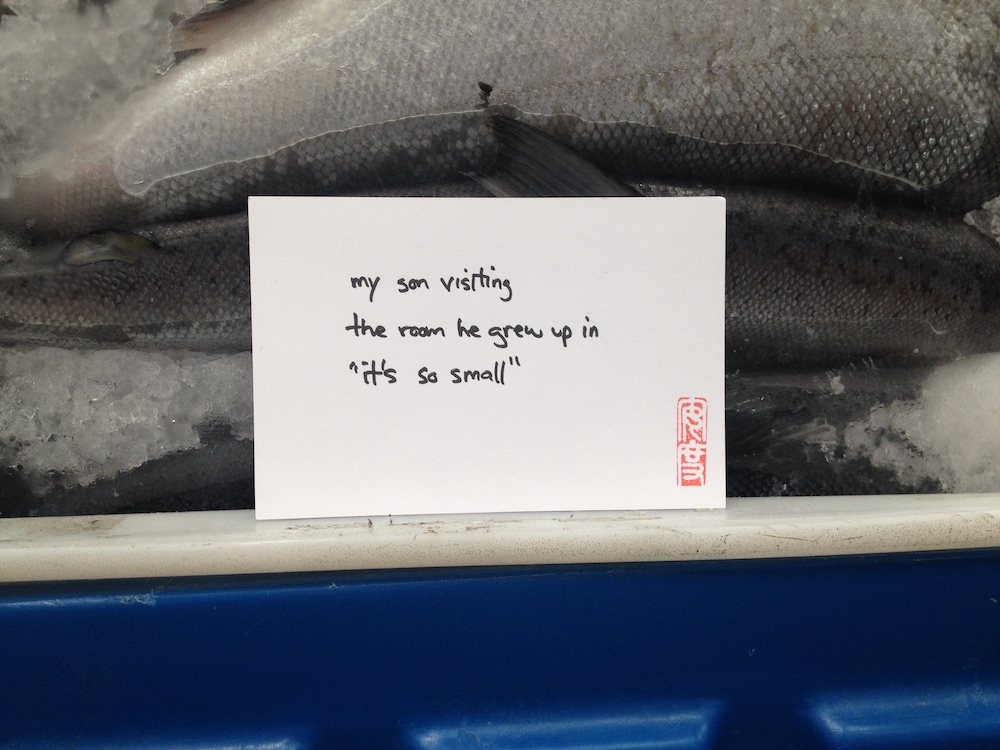 my son visiting
the room he grew up in
"it's so small"